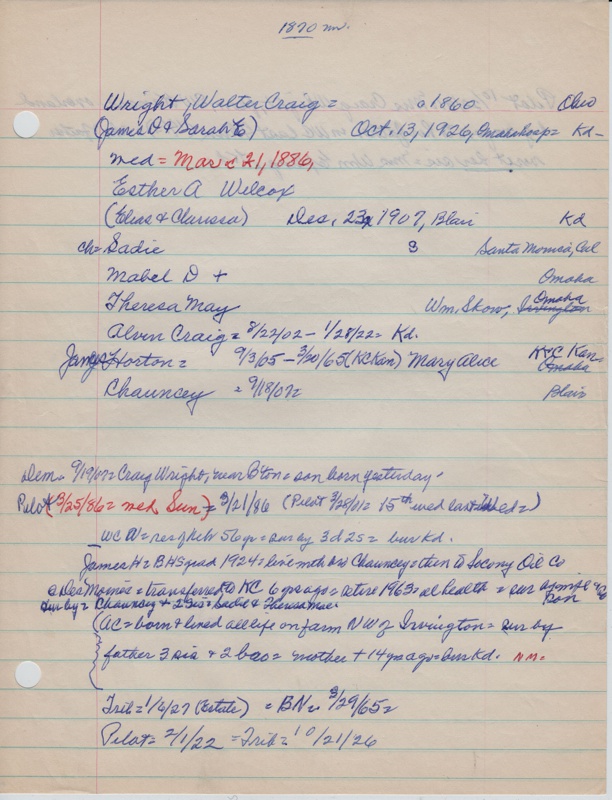 1870 nw.
Wright, Walter Craig = a 1860 Ohio
(James D & Sarah E) Oct. 13, 1926, Omaha hosp = Kd-
med = Mar 21, 1886,
Esther A Wilcox
(Elias & Clarissa) Des, 23, 1907, Blair Kd
ch = Sadie S Santa Monica, Cal
Mabel D + Omaha
Theresa May Wm. Skow, Omaha
Alvin Craig = 8/22/02 - 1/28/22 = Kd.
James Horton = 9/3/65 - 3/20/65 (KC Kan) Mary Alice K.C Kan- Omaha
Chauncey = 9/18/07= Blair
Dem = 9/19/07 = Craig Wright, near B'ton = son born yesterday.
Pilot (3/25/86 = med Sun) = 3/21/86 (Pilot 3/28/01 = 15th wed last =)
WCW = res of Neb 56 yr = sur by 3 d 2 s = bur Kd.
James H = BHS grad 1924 = Chauncey = then to Socony Oil Co
Des Moines = transferred to KC 6 yrs ago = retire 1963 = ill health = sur
sur by = Chauncey + 2 sis = Sadie & Theresa Mae.
(AC = born & lived all life on farm NW of Irvington = sur by
father 3 sis & 2 bro = mother + 14 yrs ago = bur Kd. NM.
Trib = 1/6/27 (Estate) = BN = 3/29/65 =
Pilot = 2/1/22 = Trib = 10/21/26